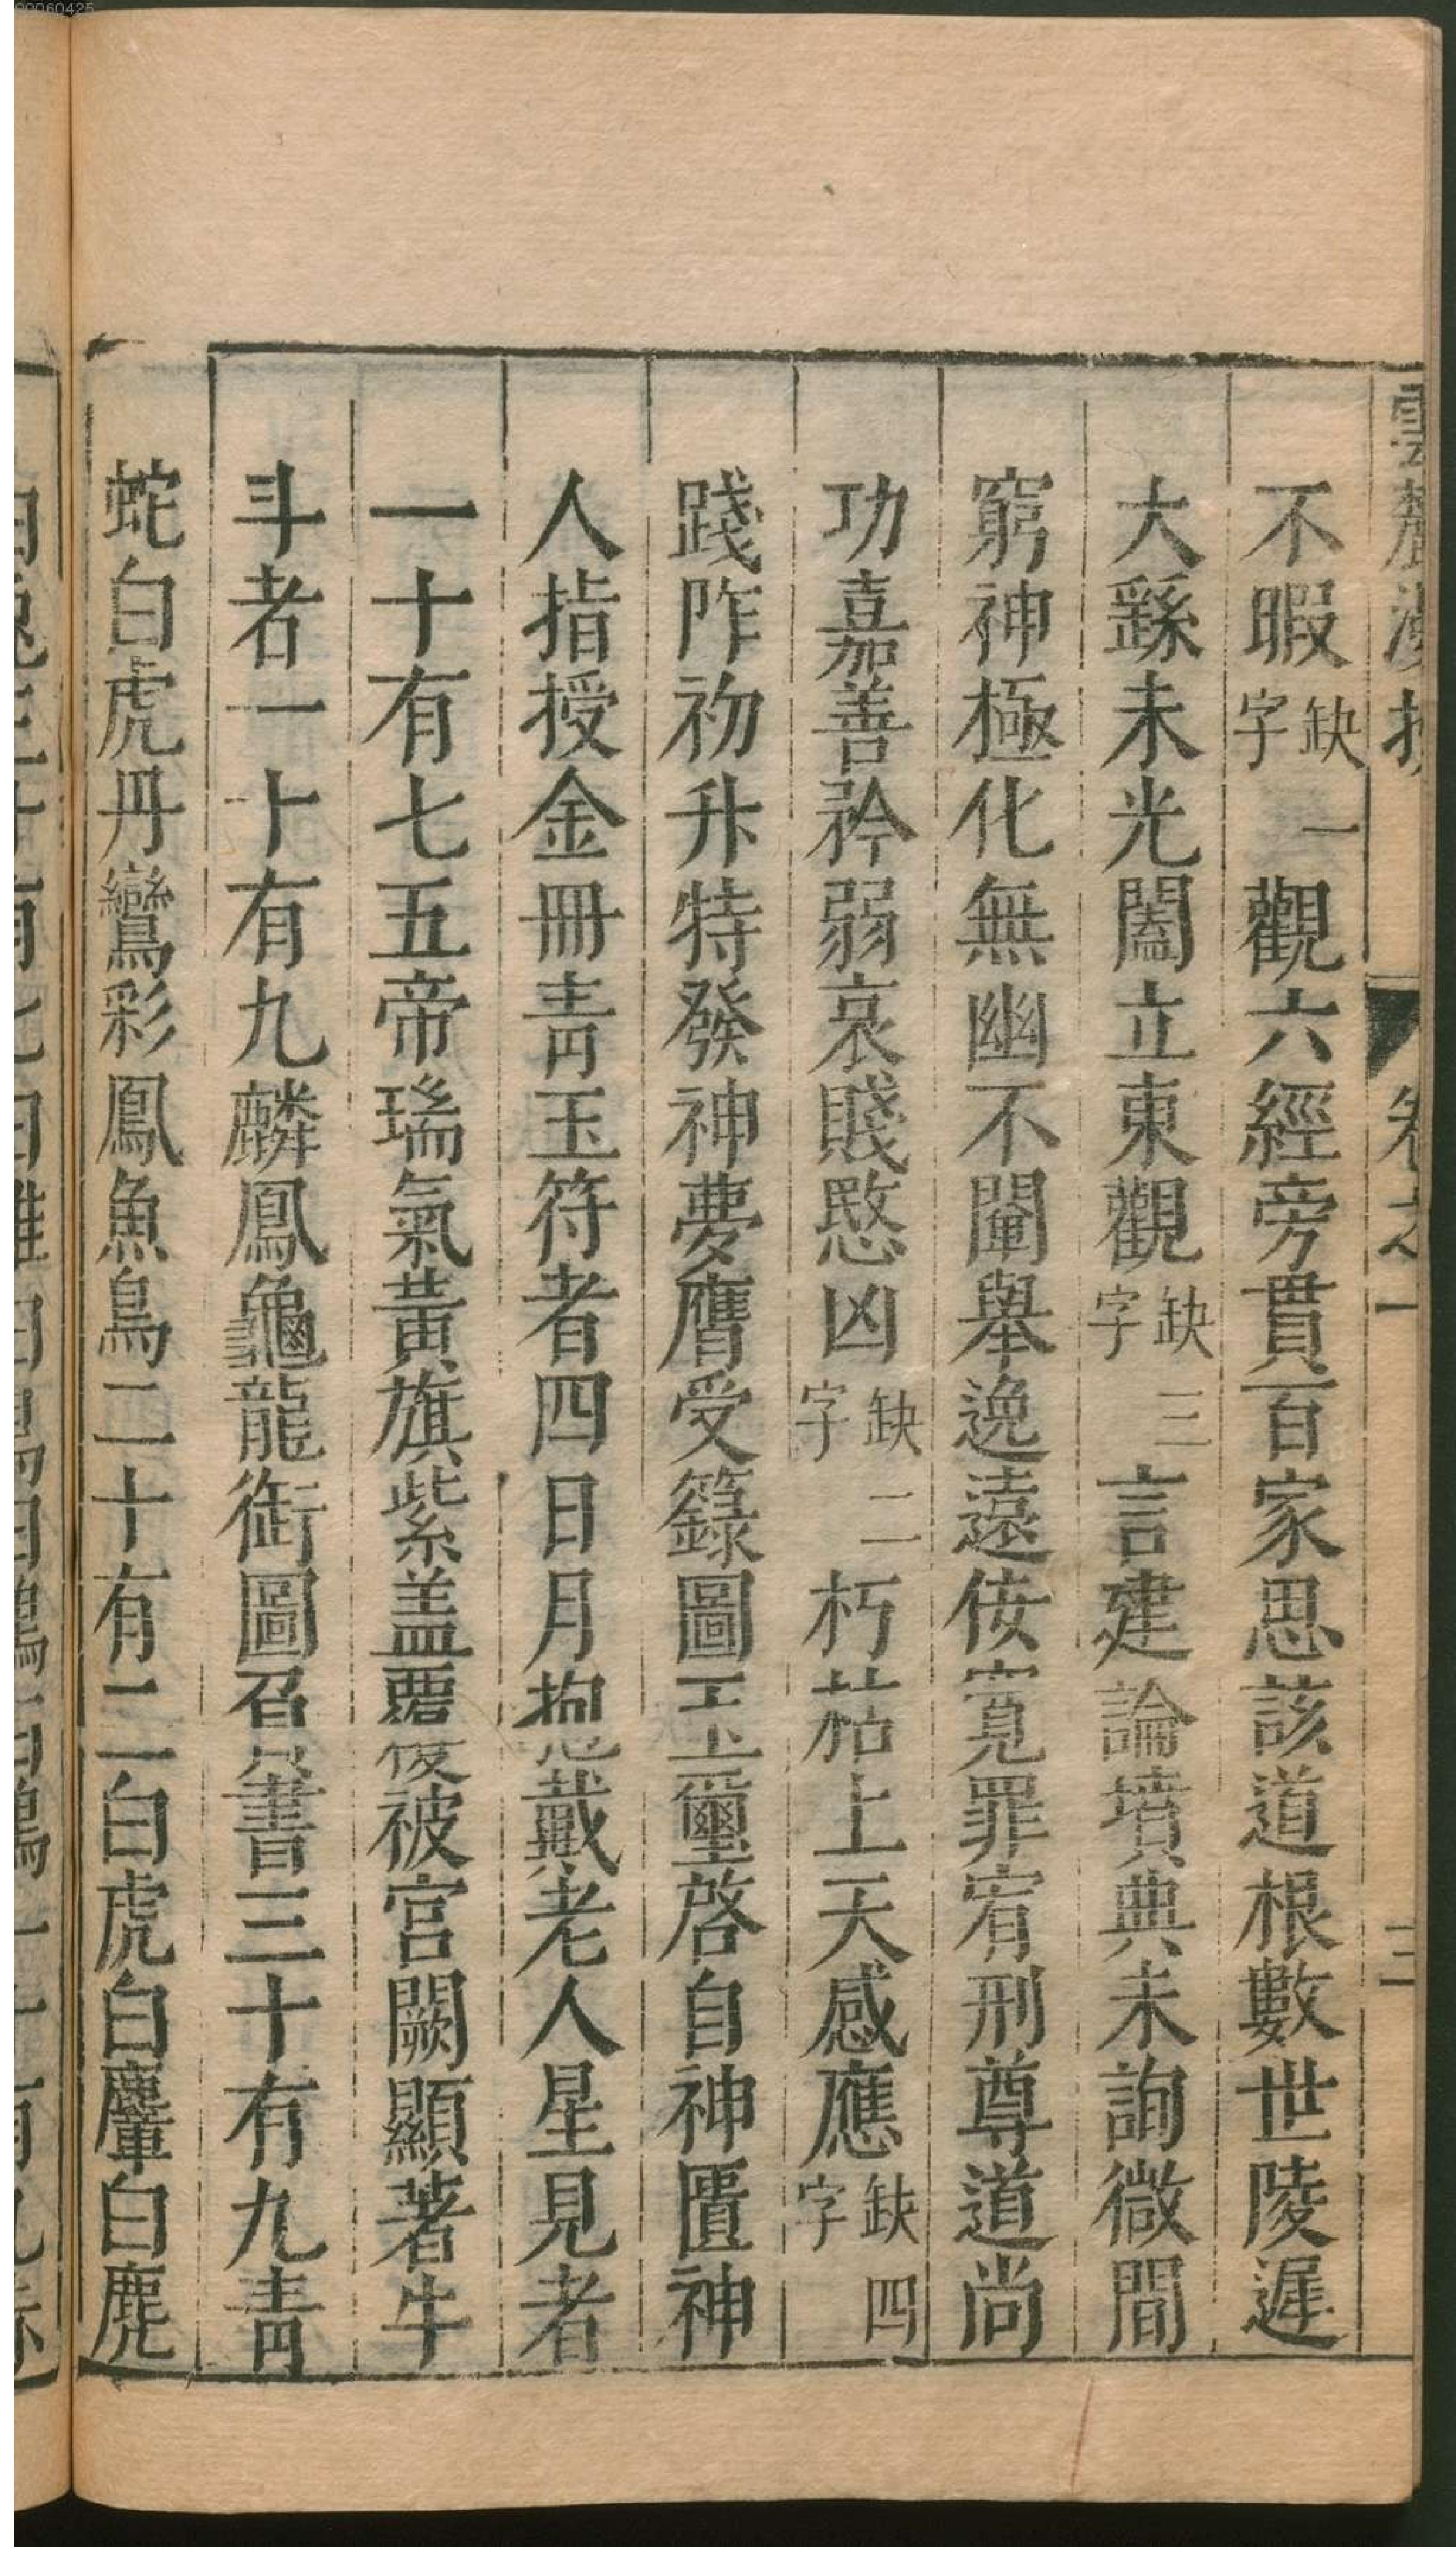 雲麓漫抄 卷之一 三
不暇缺一字觀六經旁貫百家思該道根數世陵遲
大繇未光闔立東觀缺三字言建論墳典未詢微間
窮神極化無幽不闡舉逸遠佞寬罪宥刑尊道尚
功嘉善矜弱哀賤愍凶缺二字朽枯上天感應缺四字
踐阼初升特發神夢膺受籙圖玉璽啓自神匱神
人指授金冊青玉符者四日月抱戴老人星見者
一十有七五帝瑞氣黃旗紫蓋覆被宮闕顯著牛
斗者一十有九麟鳳龜龍銜圖負書三十有九青
蛇白虎丹鸞彩鳳魚鳥二十有二白虎白麞白鹿
00060425